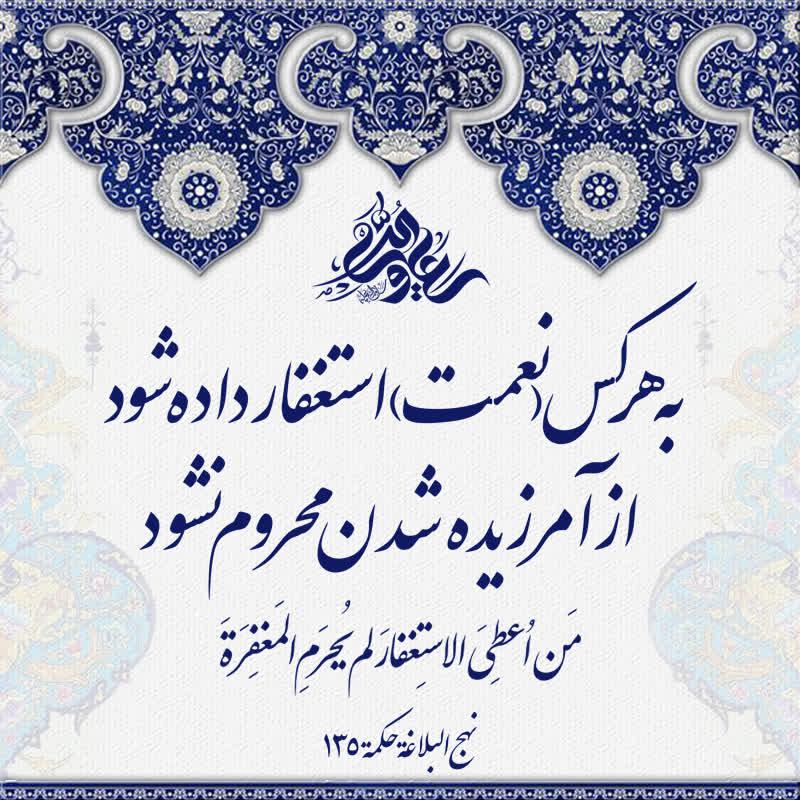 علی ولی الله
به هرکس (نعمت) استغفار داده شود
از آمرزیده شدن محروم نشود
مَن اُعطِیَ الاستِغفارَ لم یُحرَمِ المَغفِرَةَ
نهج البلاغة حکمة ۱۳۵